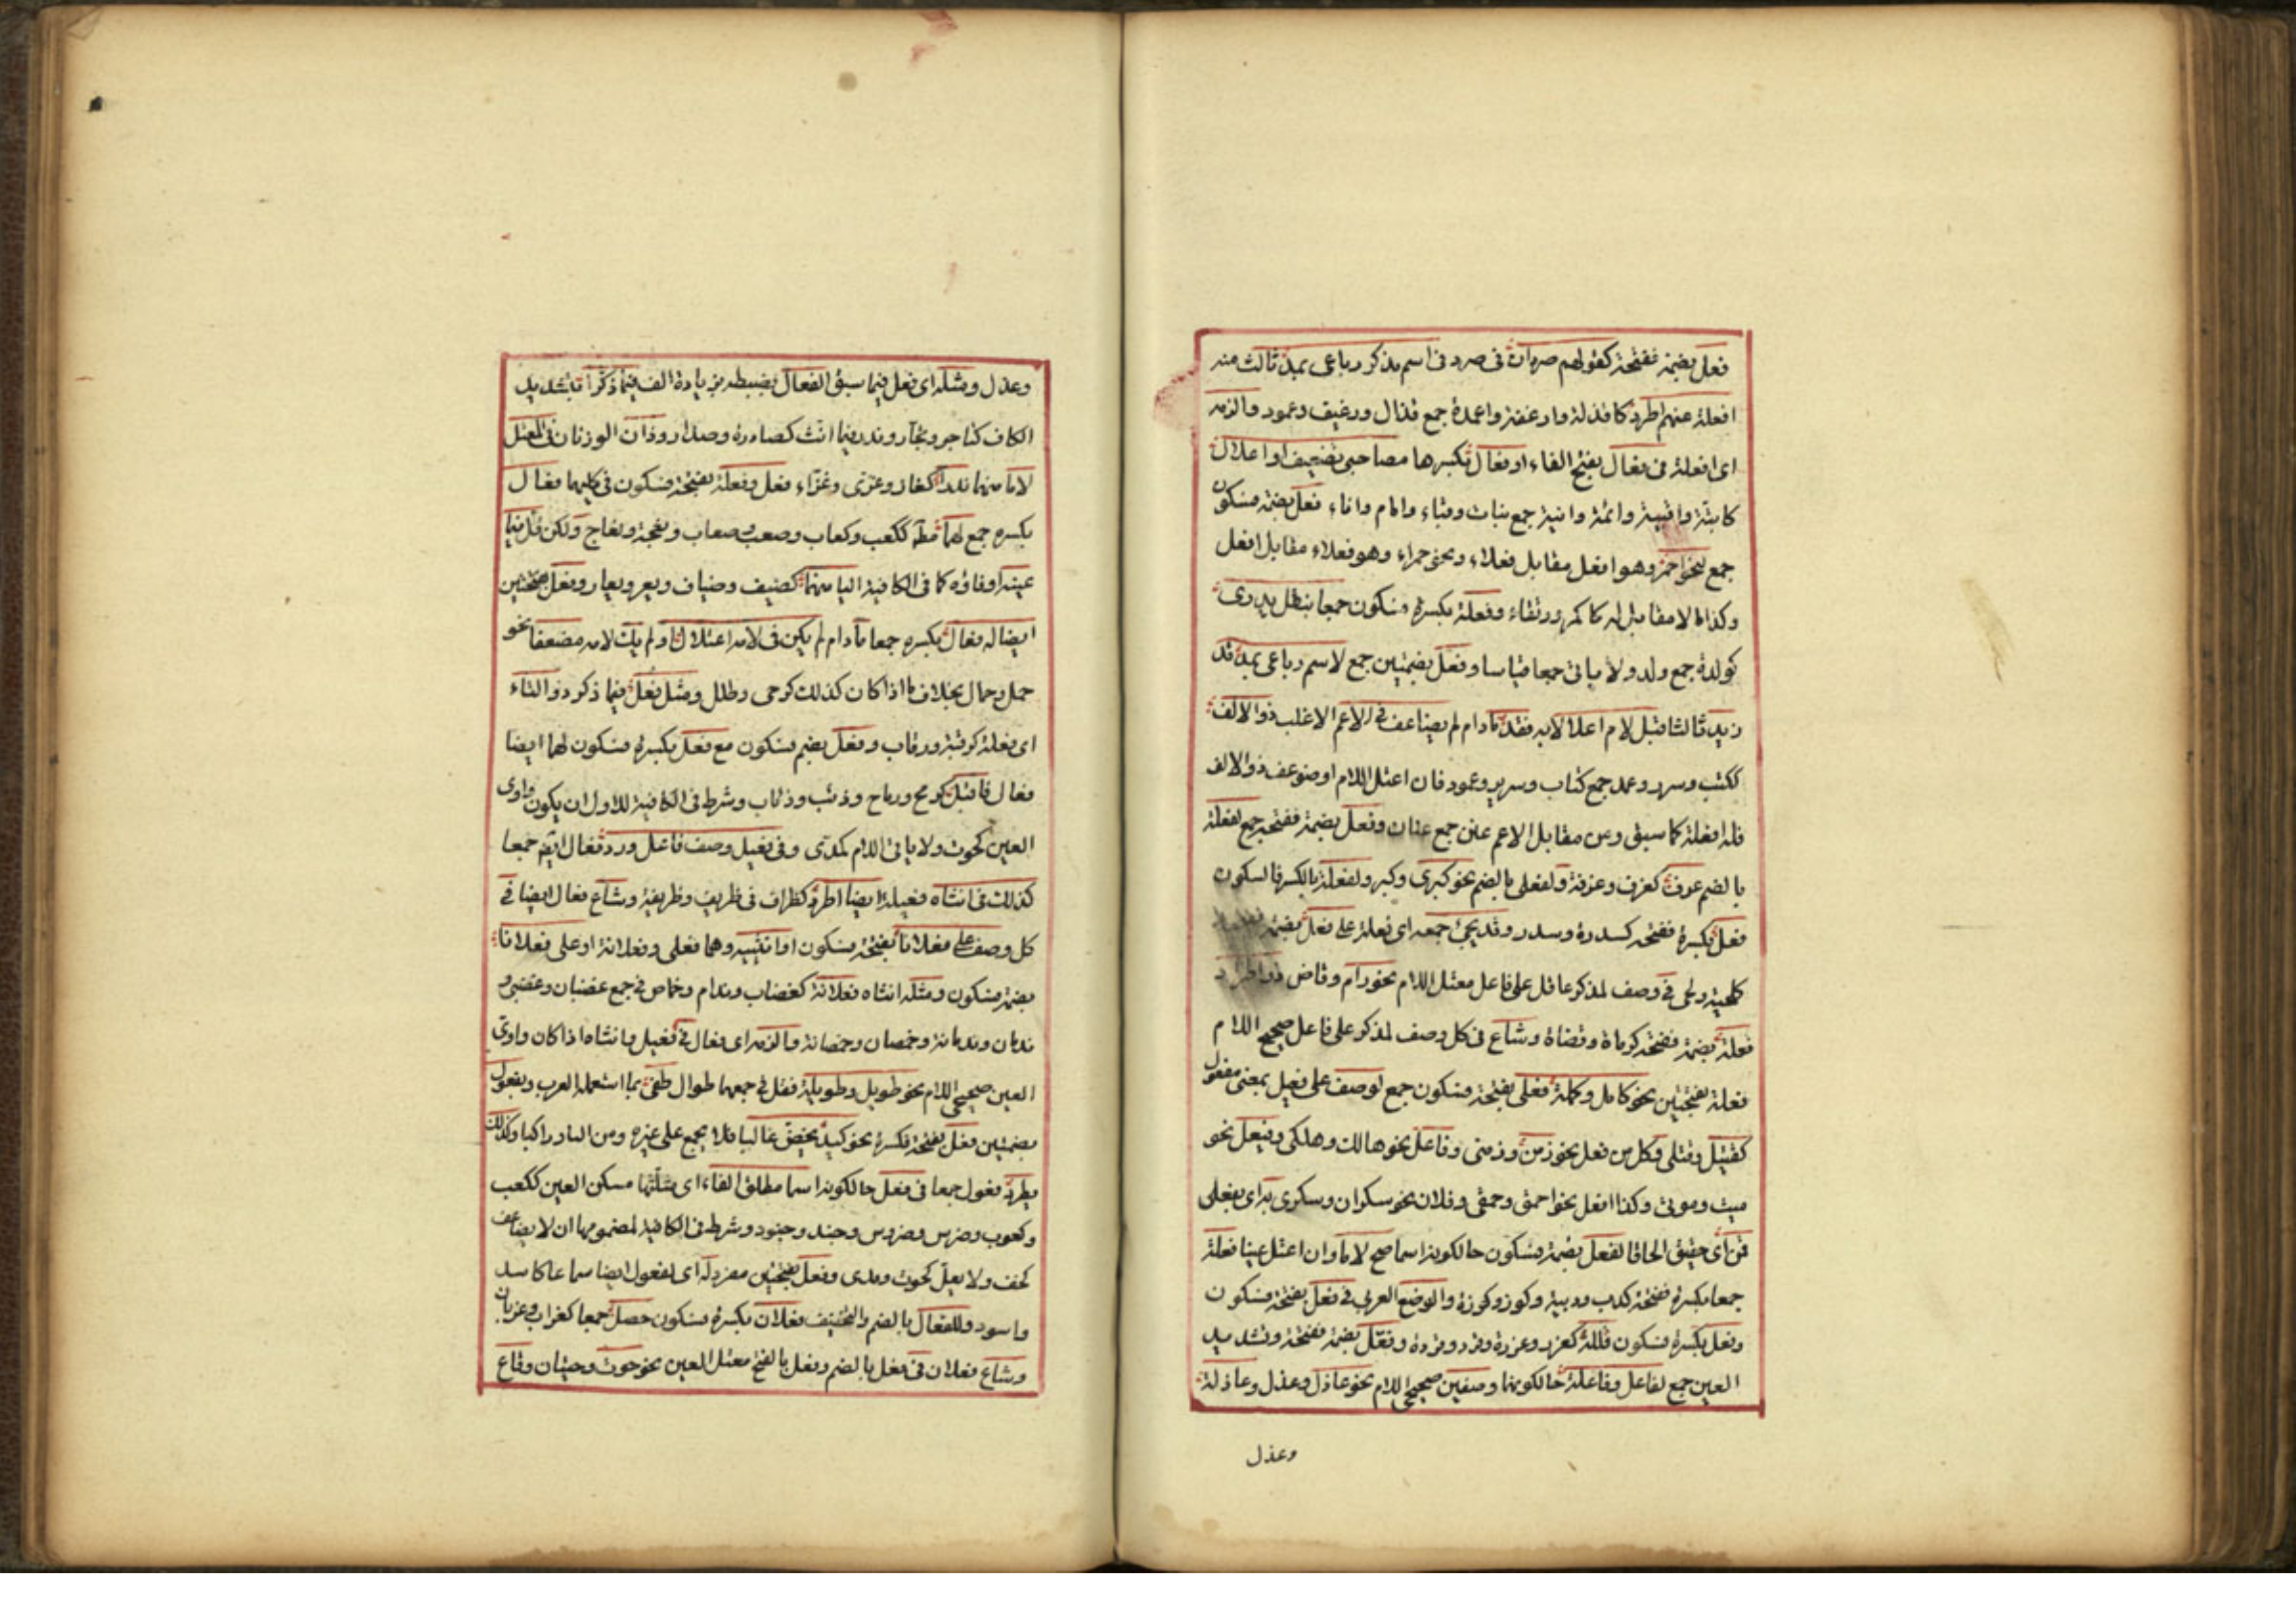 فعل بضمة ففتحة كقولهم صردان فى صرد فى اسم مذكر رباعى بمد ثالث منه
افعلة عنهم اطرد كاقذلة وارغفة واعمدة جمع قذال ورغيف وعمود والزمه
اى افعلة فى فعال بفتح الفاء او فعال بكسرها مصاحبى تضعيف او اعلال
كابتة واقبية وائمة وانية جمع بتات وقباء وامام واناء فعل بضمة فسكون
جمع لنحو احمر وهو افعل مقابل فعلاء ونحو حمراء وهو فعلاء مقابل افعل
وكذا ما لا مقابل له كاكمر ورتقاء وفعلة بكسرة فسكون جمعا بنقل يدرى
كولدة جمع ولد ولا ياتى جمعا قياسا وفعل بضمتين جمع لاسم رباعى بمد قد
زيد ثالثا قبل لام اعلالا به فقد مادام لم يضاعف فى الاعم الاغلب ذو الالف
ككتب وسرر وعمد جمع كتاب وسرير وعمود فان اعتل اللام او ضوعف ذو الالف
فله افعلة كما سبق ومن مقابل الاعم عنن جمع عنان وفعل بضمة ففتحة جمع لفعلة
بالضم عرف كغرف وغرفة ولفعلى بالضم نحو كبرى وكبر ولفعلة بالكسر فالسكون
فعل بكسرة ففتحة كسدرة وسدر وقد يجئ جمعه اى فعلة على فعل بضمة
كلحية ولحى فى وصف لمذكر عاقل على فاعل معتل اللام نحو رام وقاض ذو اطراد
فعلة بضمة ففتحة كرماة وقضاة وشاع فى كل وصف لمذكر على فاعل صحيح اللام
فعلة بفتحتين نحو كامل وكملة فعلى بفتحة فسكون جمع لوصف على فعيل بمعنى مفعول
كقتيل وقتلى وكل من فعل نحو زمن وزمنى وفاعل نحو هالك وهلكى وفيعل نحو
ميت وموتى وكذا افعل نحو احمق وحمقى وفلان نحو سكران وسكرى به اى بفعلى
قمن اى حقيق الحاقا لفعل بضمة فسكون حالكونه اسما صح لاما وان اعتل عينا فعلة
جمعا بكسرة ففتحة كدب ودببة وكوز وكوزة والوضع العربى فى فعل بفتحة فسكون
وفعل بكسرة فسكون قلله كغرد وغردة وقرد وقردة وفعل بضمة ففتحة وتشديد
العين جمع لفاعل وفاعلة حالكونهما وصفين صحيحى اللام نحو عاذل وعذل وعاذلة
وعذل
وعذل ومثله اى فعل فيما سبق الفعال بضبطه بزيادة الف فيما ذكرا بتشديد
الكاف كتاجر وتجار وندر فيما انث كصادة وصداد وذان الوزنان فى المعتل
لاما منهما ندرا كغاز وغزى وغزاء فعل وفعلة بفتحة فسكون فى كليهما فعال
بكسره جمع لهما مط ككعب وكعاب وصعب وصعاب ونعجة ونعاج ولكن قل فيما
عينه او فاؤه كما فى الكافية اليا منهما كضيف وضياف ويعر ويعار وفعل بفتحتين
ايضا له فعال بكسره جمعا مادام لم يكن فى لامه اعتلال او لم يك لامه مضعفا نحو
جمل وجمال بخلاف ما اذا كان كذلك كرحى وطلل ومثل فعل فيما ذكر ذو التاء
اى فعلة كرقبة ورقاب وفعل بضم فسكون مع فعل بكسرة فسكون لهما ايضا
فعال فاقبل كرمح ورماح وذئب وذئاب وشرط فى الكافية للاول ان يكون واوى
العين كحوت ولا يائى اللام كمدى وفى فعيل وصف فاعل ورد فعال ايضا جمعا
كذلك فى انثاه فعيلة ايضا اطرد كظراف فى ظريف وظريفة وشاع فعال ايضا فى
كل وصف على فعلانا بفتحة فسكون او انثييه وهما فعلى وفعلانة او على فعلانا
بضمة فسكون ومثله انثاه فعلانة كغضاب وندام وخماص فى جمع غضبان وغضبى و
ندمان وندمانة وخمصان وخمصانة والزمه اى فعال فى فعيل وانثاه اذا كان واوى
العين صحيحى اللام نحو طويل وطويلة فقل فى جمعهما طوال تفى بما استعمله العرب وبفعول
بضمتين فعل بفتحة فكسرة نحو كبد يخص غالبا فلا يجمع على غيره ومن النادر اكباد وكذلك
يطرد فعول جمعا فى فعل حالكونه اسما مطلق الفاء اى مثلثها مسكن العين ككعب
وكعوب وضرس وضروس وجند وجنود وشرط فى الكافية لمضمومها ان لا يضاعف
كخف ولا يعل كحوت ومدى وفعل بفتحتين مفرد له اى لفعول ايضا سماعا كاسد
واسود وللفعال بالضم والتخفيف فعلان بكسرة فسكون حصل جمعا كغراب وغربان
وشاع فعلان فى فعل بالضم وفعل بالفتح معتل العين نحو حوت وحيتان وقاع